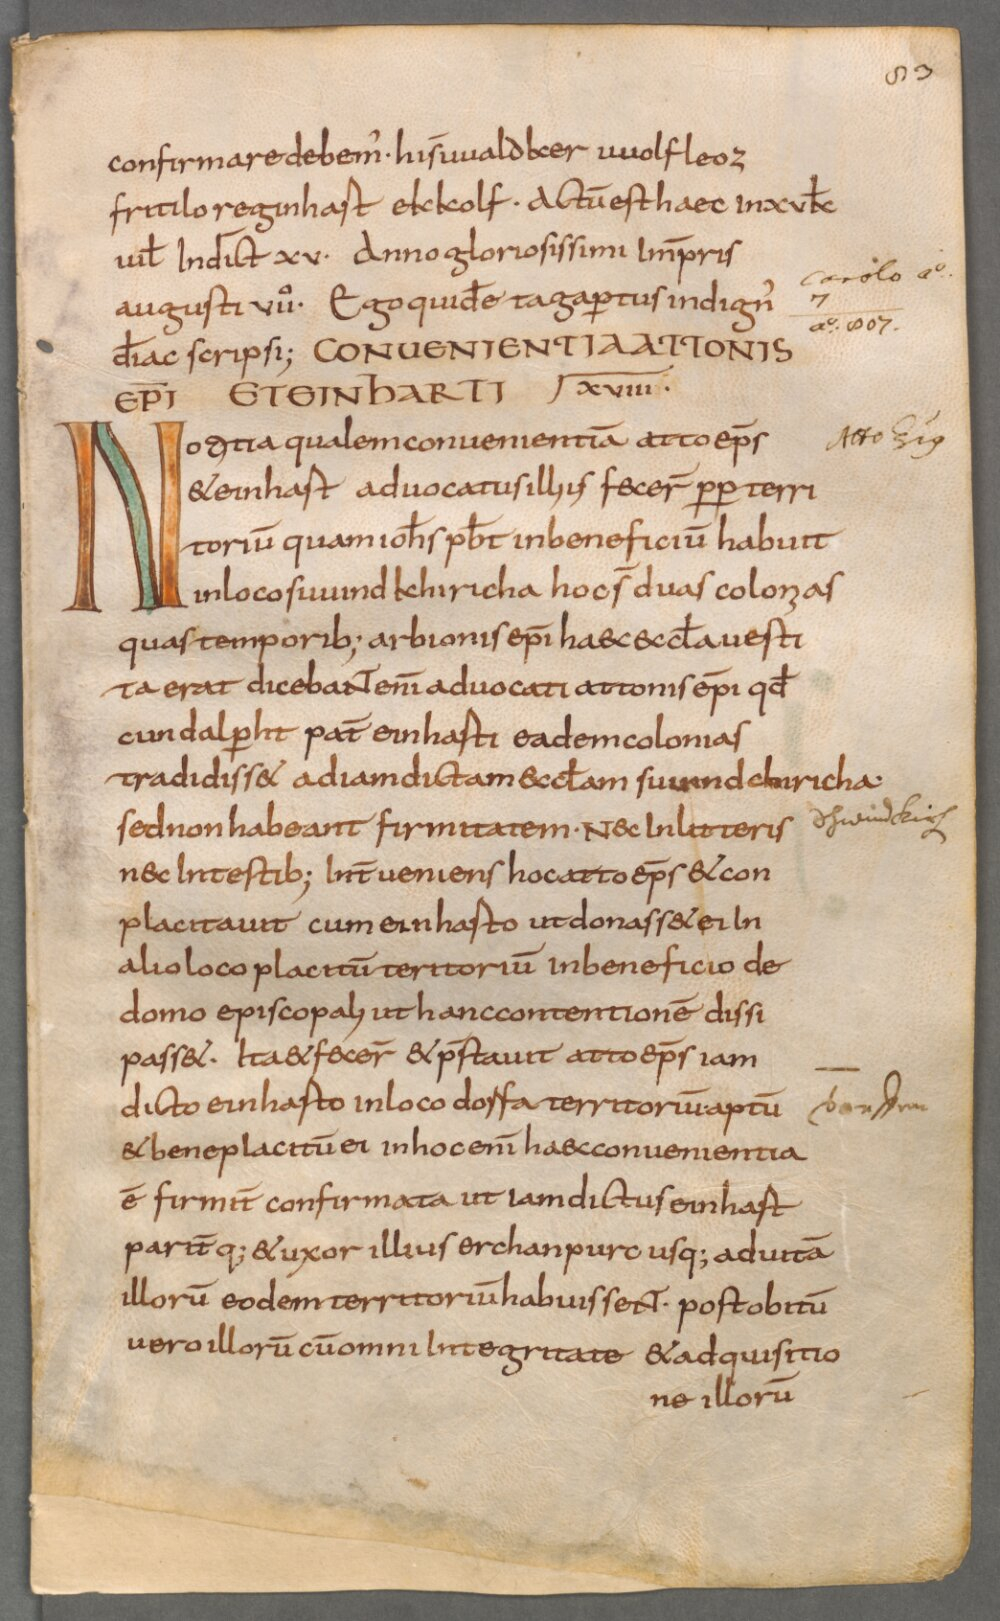 83
confirmare debem᷒· his̄ uualdker uuolfleoz
fritilo reginhast ekkolf · Actū est haec in xvi kł
iuł Indict̄ xv· Anno gloriosissimi Im̄pris
augusti vii̊· Ego quidē tagaꝑtus indign᷒
Carolo aº.
7
aº. 807.
diac̄ scripsi; CONUENIENTIA ATTONIS
EP̄I ET EINHARTI xviiii·
Notitia qualem conuenientiā atto ep̄s
Atto
& einhast aduocatus illius fecer̄ ꝓp terri
toriū quam ioħs prb̄t in beneficiū habuit
in loco suuindkhiricha hoc s̄ duas colonias
quas temporib; arbionis ep̄i haec eccl̄a uesti
ta erat dicebant eni̅ aduocati attonis ep̄i qđ
cundalꝑht pat̄ einhasti eadem colonias
tradidiss& ad iamdictam eccl̄am suuindchiricha·
sed non habeant firmitatem· Nec In litteris
nec In testib; Int̄ueniens hoc atto ep̄s & con
placitauit cum einhasto ut donass& ei In
alio loco placitū teritoriū in beneficio de
domo episcopali ut hanc contentionē dissi
pass&· Ita & fecer̄ & p̄stauit atto ep̄s iam
dicto einhasto in loco dorfa territoriū aptū
& bene placitū ei in hoc eni̅ haec conuenientia
ē firmit̄ confirmata ut iamdictus einhast
parit̄q; & uxor illius erchanpurc usq; ad uitā
illorū eodem territoriū habuissent· post obitū
uero illorū cū omni Integritate & adquisitio
ne illorū